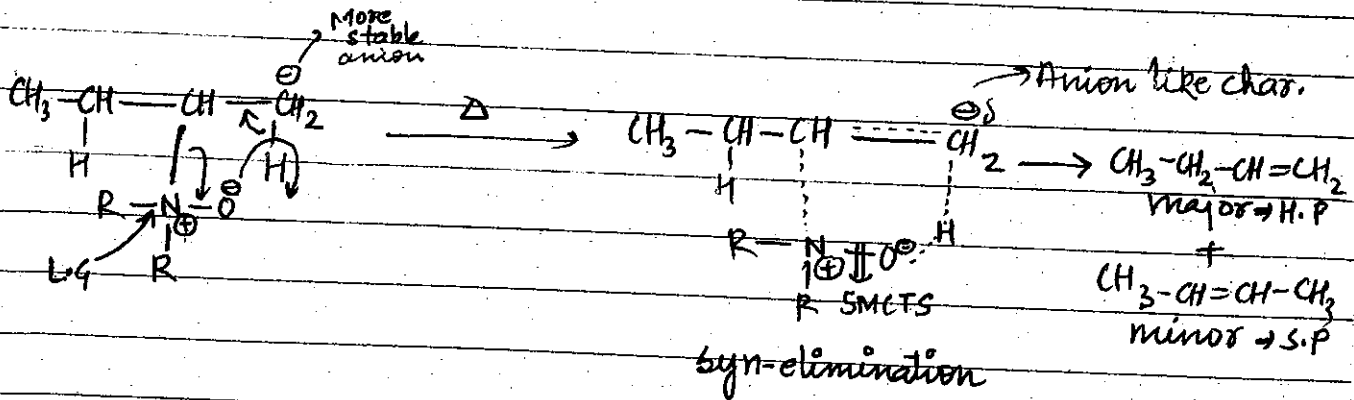 More
stable
anion
⊖
CH₃-CH-CH-CH₂
H
H
R-N-O⊖
⊕
L.G
R
Δ
Anion like char.
⊖δ
CH₃-CH-CH=CH₂
H
H
R-N=O⊖
⊕
R 5MCTS
syn-elimination
→ CH₃-CH₂-CH=CH₂
major → H.P
+
CH₃-CH=CH-CH₃
minor → S.P